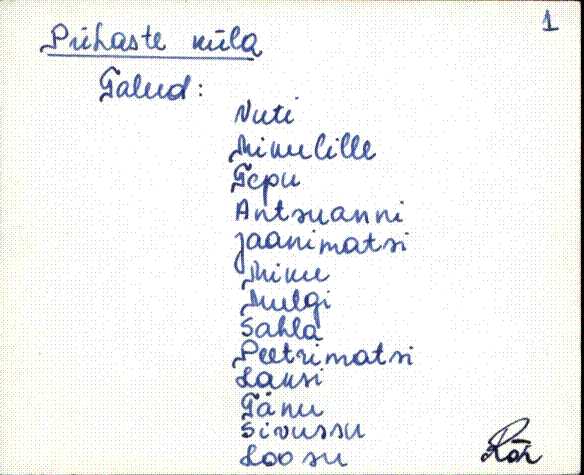 1
Pühaste küla
Talud:
Nuti
Mikulille
Tepu
Antsuanni
Jaanimatsi
Miku
Mulgi
Sahla
Peetrimatsi
Laksi
Tänu
Sivussu
Loosu
Rõn